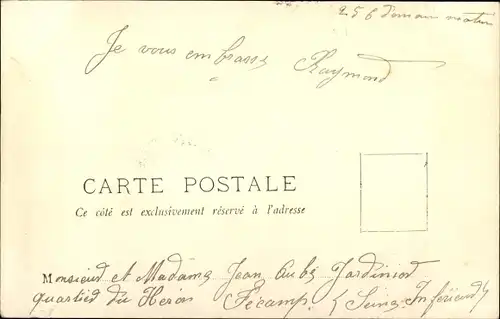 256 demain matin
Je vous embrasse Raymond
CARTE POSTALE
Ce côté est exclusivement réservé à l'adresse
Monsieur et Madame Jean Aubé Jardinier
quartier du Heron Fécamp (Seine-Inférieure)